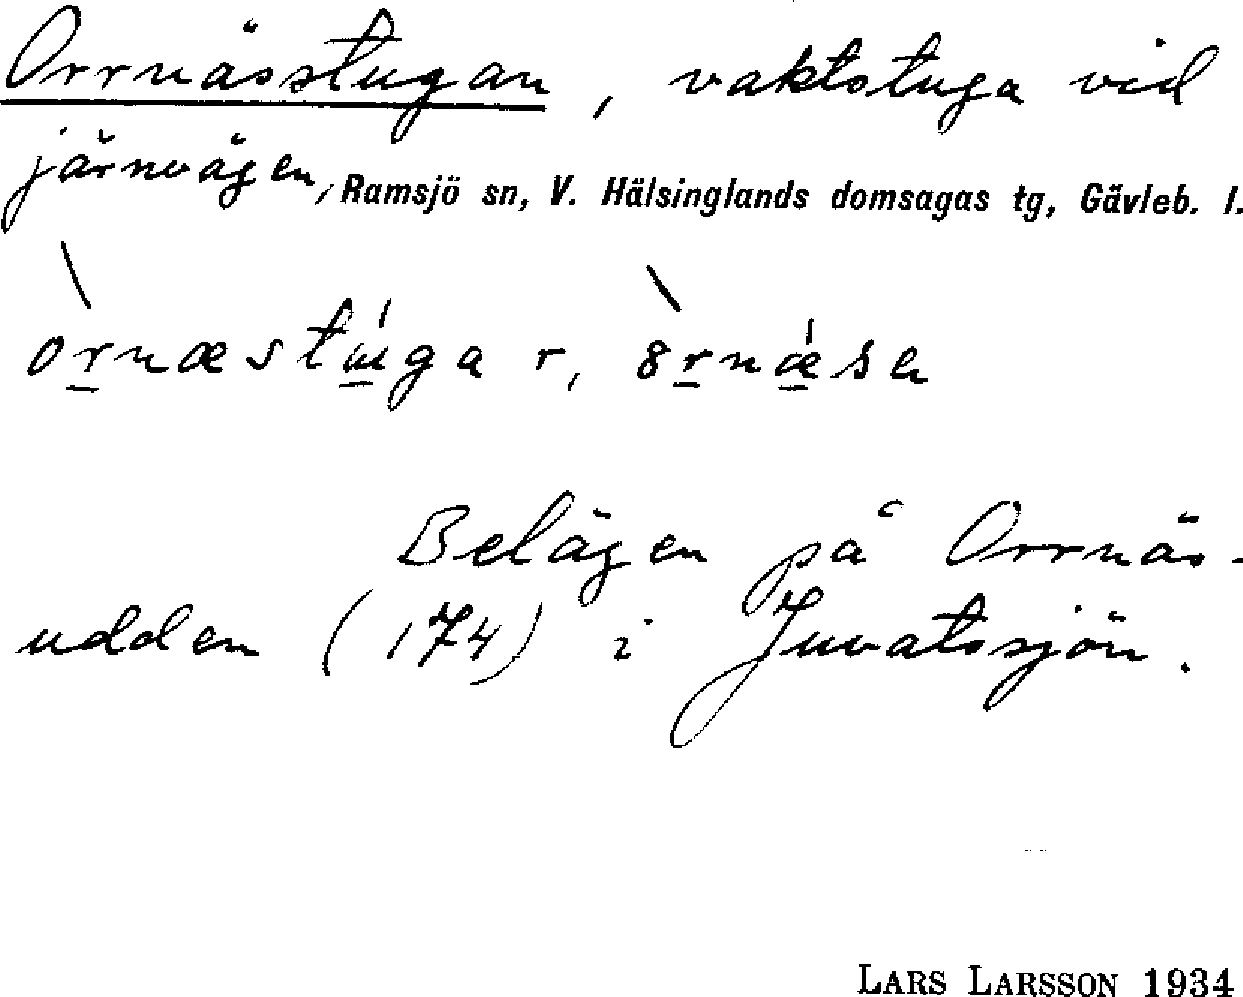 Orrnässtugan, vaktstuga vid
järnvägen, Ramsjö sn, V. Hälsinglands domsagas tg, Gävleb. l.
Belägen på Orrnäs-
udden (174) i Juvatssjön.
LARS LARSSON 1934